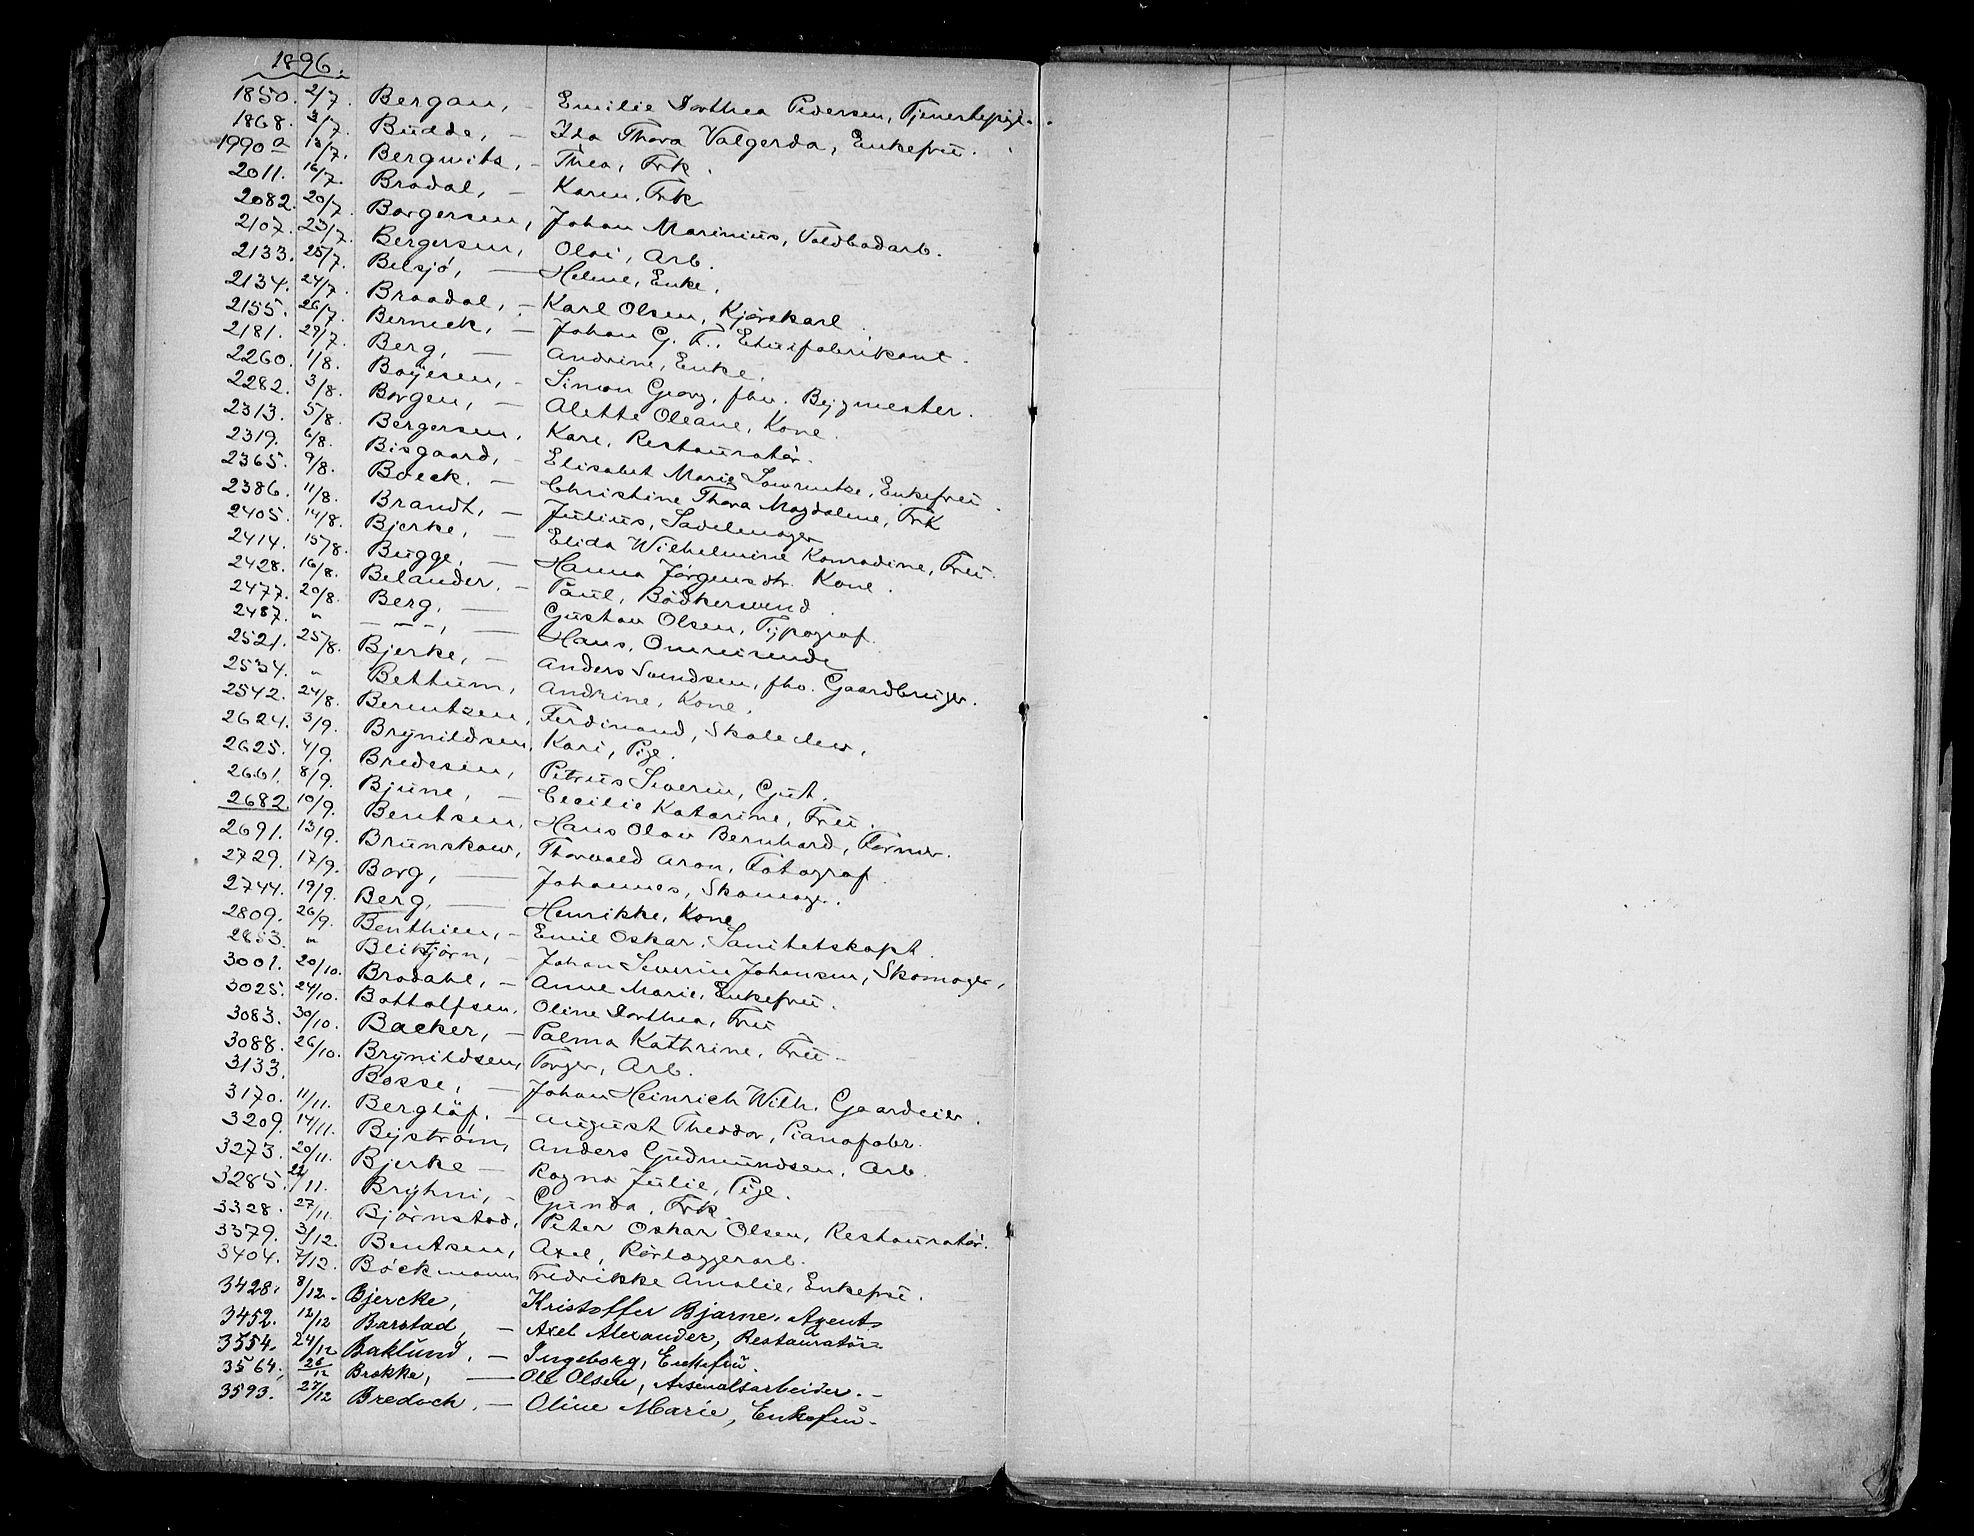 1896.
1850. 2/7. Bergan, – Emilie Dorthea Pedersen, Tjenestepige.
1868. 3/7. Budde, – Ida Thora Valgerda, Enkefru.
1990 a 13/7. Bergwits, – Thea, Frk.
2011. 16/7. Bradal, – Karen, Frk
2082. 20/7. Borgersen, Johan Marinius, Voldbadarb.
2107. 23/7. Bergersen, Olai, Arb.
2133. 25/7. Belsjø, – Helene, Enke.
2134. 24/7. Braadal, – Karl Olsen, Kjørekarl.
2155. 26/7. Bernick, – Johan G. F., Etuifabrikant.
2181. 29/7. Berg, – Andrine, Enke.
2260. 1/8. Boyesen, – Simon Georg, fhv. Bygmester.
2282. 3/8. Borgen, – Alette Oleane, Kone.
2313. 5/8. Bergersen, Kare, Restauratør.
2319. 6/8. Bisgaard, – Elisabet Marie Lawrentze, Enkefru.
2365. 9/8. Boeck. – Christine Thora Magdalene, Frk
2386. 11/8. Brandt, – Julius, Sadelmager
2405. 14/8. Bjerke, – Elida Wilhelmine Konradine, Fru.
2414. 15/8. Bugge, – Hanna Jørgensdtr. Kone.
2428. 16/8. Belander, – Paul, Bødkersvend.
2477. 20/8. Berg, – Gustav Olsen, Typograf.
2487. " – – –, – Hans, Omreisende
2521. 25/8. Bjerke, – Anders Svendsen, fhv. Gaardbruger.
2534. " Bettum, Andrine, Kone.
2542. 24/8. Berentzen, Ferdinand, Skoleelev.
2624. 3/9. Brynildsen, Kari, Pige.
2625. 4/9. Bredesen, Petrus Severin, Gut.
2661. 8/9. Bjune, – Cecilie Katarine, Fru.
2682. 10/9. Bentsen, Hans Olav Bernhard, Former.
2691. 13/9. Brunskow, Thorvald Aron, Fotograf.
2729. 17/9. Borg, – Johannes, Skomager.
2744. 19/9. Berg, – Henrikke, Kone
2809. 26/9. Benthien, – Emil Oskar, Sanitetskapt.
2853. " Blikfjørn, – Johan Severin Johansen, Skomager,
3001. 20/10. Bradahl, – Anne Marie, Enkefru.
3025. 24/10. Bottolfsen, Oline Dorthea, Fru
3083. 30/10. Backer, – Palma Kathrine, Fru –
3088. 26/10. Brynildsen, Torger, Arb.
3133. Bosse, – Johan Heinrich Wilh. Gaardeier.
3170. 11/11. Berglöf. – August Theodor, Pianofabr.
3209. 14/11. Byström, Anders Gudmundsen, Arb.
3273. 20/11. Bjerke – Ragna Julie, Pige.
3285. 22/11. Bryhni, – Gunda, Frk.
3328. 27/11. Bjørnstad, Peter Oskar Olsen, Restauratør.
3379. 3/12. Bentsen, Axel, Rørlæggerarb.
3404. 7/12. Bøckmann, Fredrikke Amalie, Enkefru.
3428. 8/12. Bjercke, Kristoffer Bjarne, Agent,
3452. 12/12 Barstad, – Axel Alexander, Restauratør
3554. 24/12 Baklund, – Ingeborg, Enkefru.
3564. 26/12 Brokke, – Ole Olsen, Arsenalsarbeider. –
3593. 27/12 Bredoch, – Oline Marie, Enkefru –